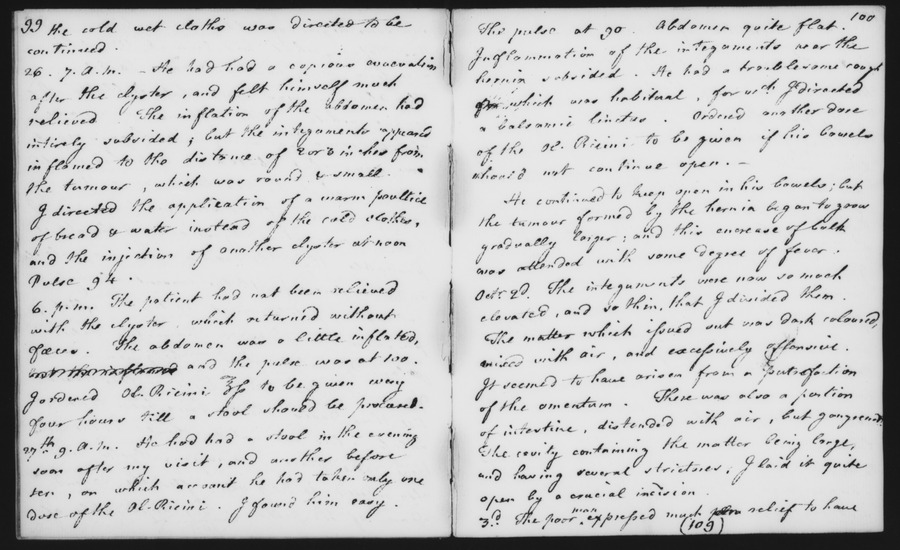 99
the cold wet cloths was directed to be
continued.
26. 7. A.m. - He had had a copious evacuation
after the clyster, and felt himself much
relieved The inflation of the abdomen had
intirely subsided; but the integuments appeared
inflamed to the distance of 2 or 3 inches from
the tumour, which was round & small.
I directed the application of a warm poultice
of bread & water instead of the cold clothes,
and the injection of another clyster at noon
Pulse 94.
6. p.m. The patient had not been relieved
with the clyster, which returned without
fæces. The abdomen was a little inflated,
and the pulse was at 100.
I ordered Ol. Ricini ℥ſs to be given every
four hours till a stool should be procured.
27th. 9. A.m. He had had a stool in the evening
soon after my visit, and another before
ten, on which account he had taken only one
dose of the Ol. Ricini. I found him easy.
100
The pulse at 90. Abdomen quite flat.
Inflammation of the integuments near the
hernia subsided. He had a troublesome cough
which was habitual, for wch I directed
a balsamic linctus. Ordered another dose
of the Ol. Ricini to be given if his bowels
should not continue open. -
He continued to keep open in his bowels; but
the tumour formed by the hernia began to grow
gradually larger; and this encrease of bulk
was attended with some degree of fever.
Octr 2d. The integuments were now so much
elevated, and so thin, that I divided them.
The matter which issued out was dark coloured,
mixed with air, and excessively offensive.
It seemed to have arisen from a putrefaction
of the omentum. There was also a portion
of intestine, distended with air, but gangrened.
The cavity containing the matter being large,
and having several strictures, I laid it quite
open by a crucial incision.
3d. The poor man expressed much relief to have
(109)